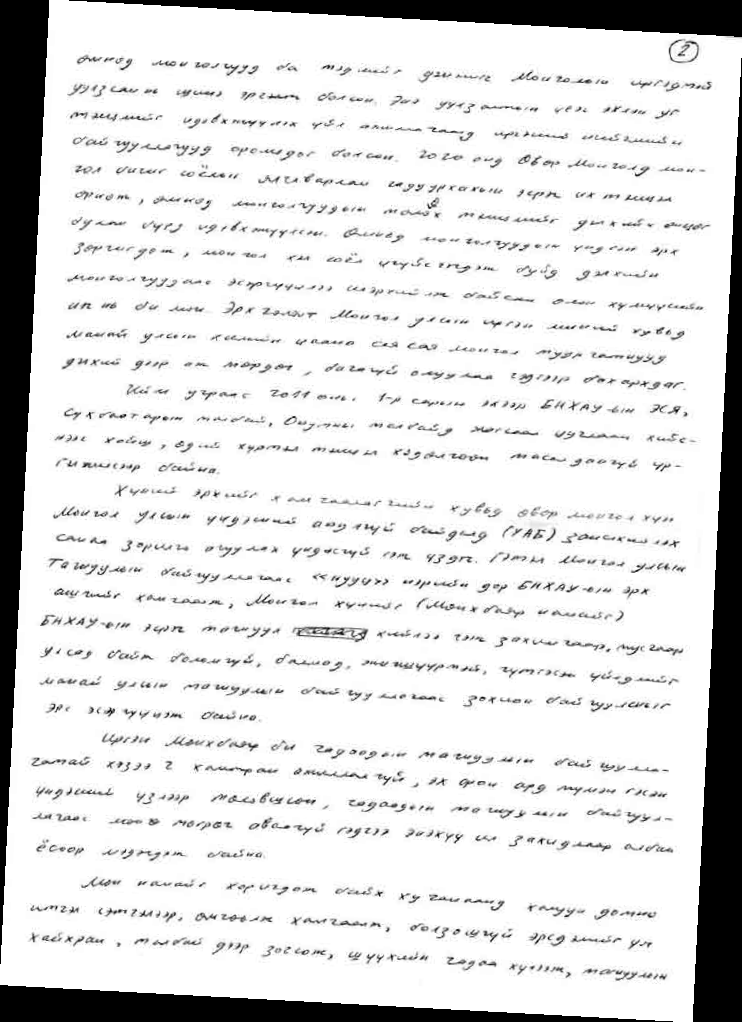 2
өмнөд монголчууд ба тэдгийг дэмжигч Монголын иргэдтэй
уулзсан нь шинэ эргэлт болсон. Энэ уулзалтын үеэс эхлэн уг
тэмцлийг идэвхжүүлэх үйл ажиллагаанд иргэний нийгмийн
байгууллагууд оролцдог болсон. 2020 онд Өвөр Монголд мон-
гол бичиг соёлын ялгаварлан гадуурхахын эсрэг их тэмцэл
өрнөж, өмнөд монголчуудын төлөөх тэмцлийг дэлхийн өнцөг
булан бүрд идэвхжүүлсэн. Өмнөд монголчуудын үндсэн эрх
зөрчигдөж, монгол хэл соёл үгүйсгэгдэж буйд дэлхийн
монголчуудаас эсэргүүцлээ илэрхийлж байсан олон хүмүүсийн
нэг нь би мөн. Эрх чөлөөт Монгол улсын иргэн миний хувьд
манай улсын хилийн цаана сая сая монгол туургатнууд
дэлхий дээр аж төрдөг, багагүй олуулаа гэдгээр бахархдаг.
Ийм учраас 2011 оны 1-р сарын эхээр БНХАУ-ын ЭСЯ,
Сүхбаатарын талбай, Оюутны талбайд жагсаал цуглаан хийс-
нээс хойш, өдий хүртэл тэмцэл хөдөлгөөн тасалдалгүй үр-
гэлжилсээр байна.
Хүний эрхийг хамгаалагчийн хувьд өвөр монгол хүн
Монгол улсын үндэсний аюулгүй байдалд (ҮАБ) заналхийлэх
санаа зорилго агуулах үндэсгүй гэж үздэг. Гэтэл Монгол улсын
Тагнуулын байгууллагаас "нууц" нэрийн дор БНХАУ-ын эрх
ашгийг хамгаалж, Монгол хүнийг (Мөнхбаяр намайг)
БНХАУ-ын эсрэг тагнуул хийлээ гэж захиалгаар, тусгаар
улсад байж боломгүй, балмад, жигшүүртэй, гүтгэсэн үйлдлийг
манай улсын тагнуулын байгууллагаас зохион байгуулсныг
эрс эсэргүүцэж байна.
Иргэн Мөнхбаяр би гадаадын тагнуулын байгуулла-
гатай хэзээ ч хамтран ажиллаагүй, эх орон ард түмэн гэсэн
үндэсний үзлээр төлөвшсөн, гадаадын тагнуулын байгуул-
лагаас мөөг төгрөг аваагүй гэдгээ энэхүү ил захидлаар албан
ёсоор мэдэгдэж байна.
Мөн намайг хоригдож байх хугацаанд халуун дотно
итгэл сэтгэлээр, өмгөөлж хамгаалж, болзошгүй эрсдэлийг үл
хайхран, талбай дээр зогсож, шүүхийн гадаа хүлээж, тагнуулын